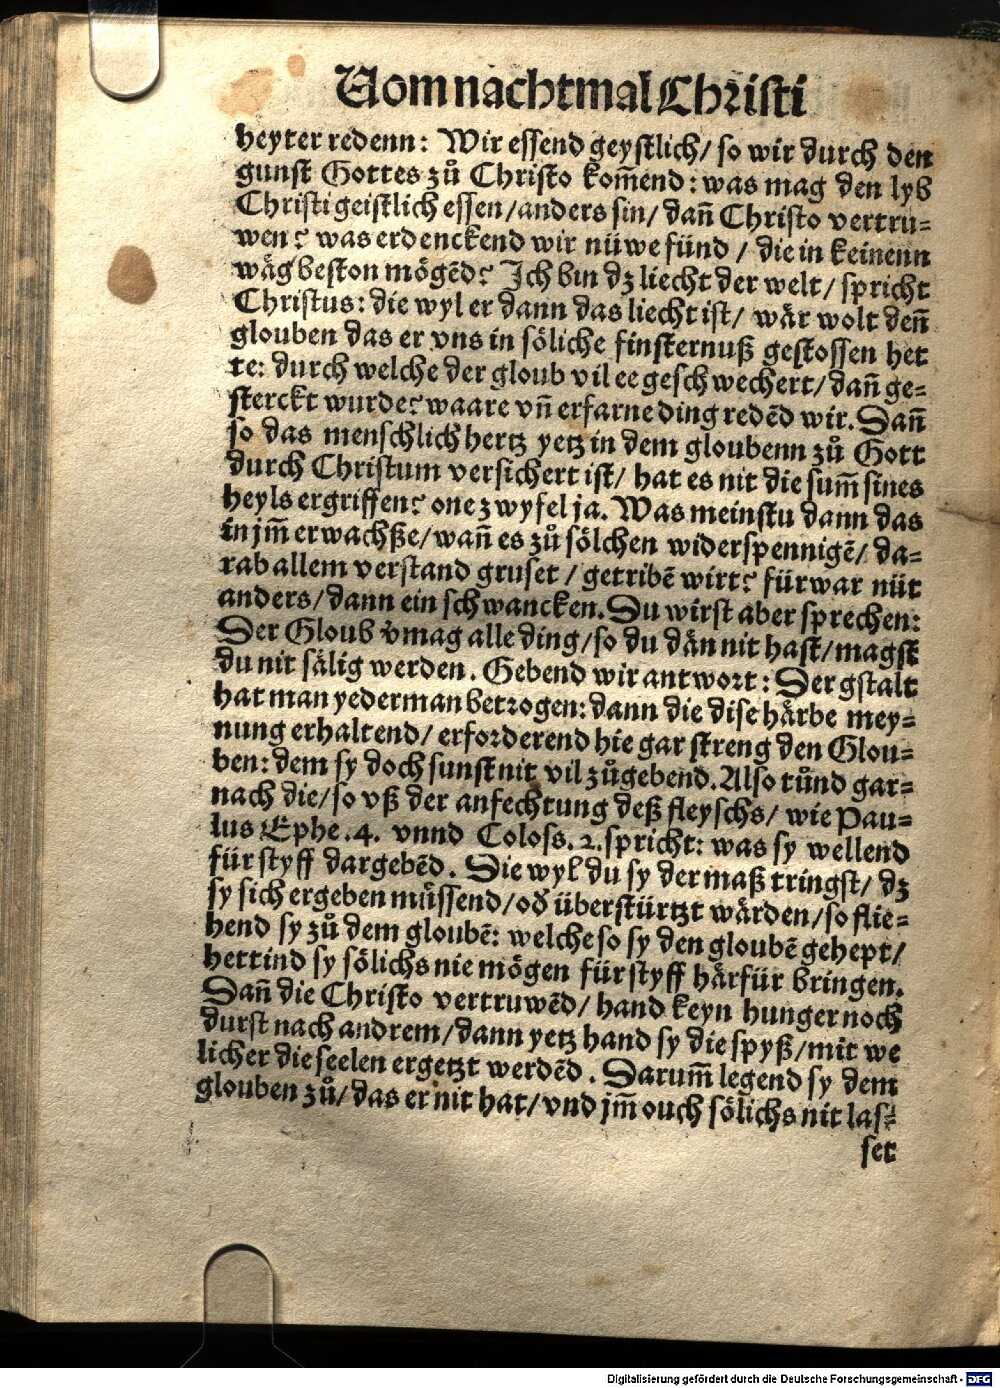 Vom nachtmal Christi
heyter redenn: Wir essend geystlich/ so wir durch den
gunst Gottes zů Christo kom̃end: was mag den lyb
Christi geistlich essen/anders sin/ dañ Christo vertru⸗
wen? was erdenckend wir nüwe fünd / die in keinenn
wåg beston mögẽd? Ich bin dz liecht der welt/ spricht
Christus: die wyl er dann das liecht ist/ wår wolt deñ
glouben das er vns in söliche finsternuß gestossen het
te: durch welche der gloub vil ee geschwechert/ dañ ge⸗
sterckt wurde? waare vñ erfarne ding redẽd wir. Dañ
so das menschlich hertz yetz in dem gloubenn zů Gott
durch Christum versichert ist/ hat es nit die sum̃ sines
heyls ergriffen? one zwyfel ja. Was meinstu dann das
in jm̃ erwachße/wañ es zů sölchen widerspennigẽ/ da⸗
rab allem verstand gruset / getribẽ wirt? fürwar nüt
anders/dann ein schwancken. Du wirst aber sprechen:
Der Gloub v̉mag alle ding/so du dån nit hast/magst
du nit sålig werden. Gebend wir antwort: Der gstalt
hat man yederman betrogen: dann die dise hårbe mey⸗
nung erhaltend/ erforderend hie gar streng den Glou⸗
ben: dem sy doch sunst nit vil zůgebend. Also tůnd gar⸗
nach die/so vß der anfechtung deß fleyschs/ wie Pau⸗
lus Ephe .4. vnnd Coloss. 2. spricht: was sy wellend
für styff dargebẽd. Die wyl du sy der maß tringst/ dz
sy sich ergeben müssend/oď überstürtzt wården/so flie⸗
hend sy zů dem gloubẽ: welche so sy den gloubẽ gehept/
hettind sy sölichs nie mögen für styff hårfür bringen.
Dañ die Christo vertruwẽd/ hand keyn hunger noch
durst nach andrem/dann yetz hand sy die spyß/mit we
licher die seelen ergetzt werdẽd . Darum̃ legend sy dem
glouben zů/ das er nit hat/ vnd jm̃ ouch sölichs nit las⸗
set
Digitalisierung gefördert durch die Deutsche Forschungsgemeinschaft - DFG